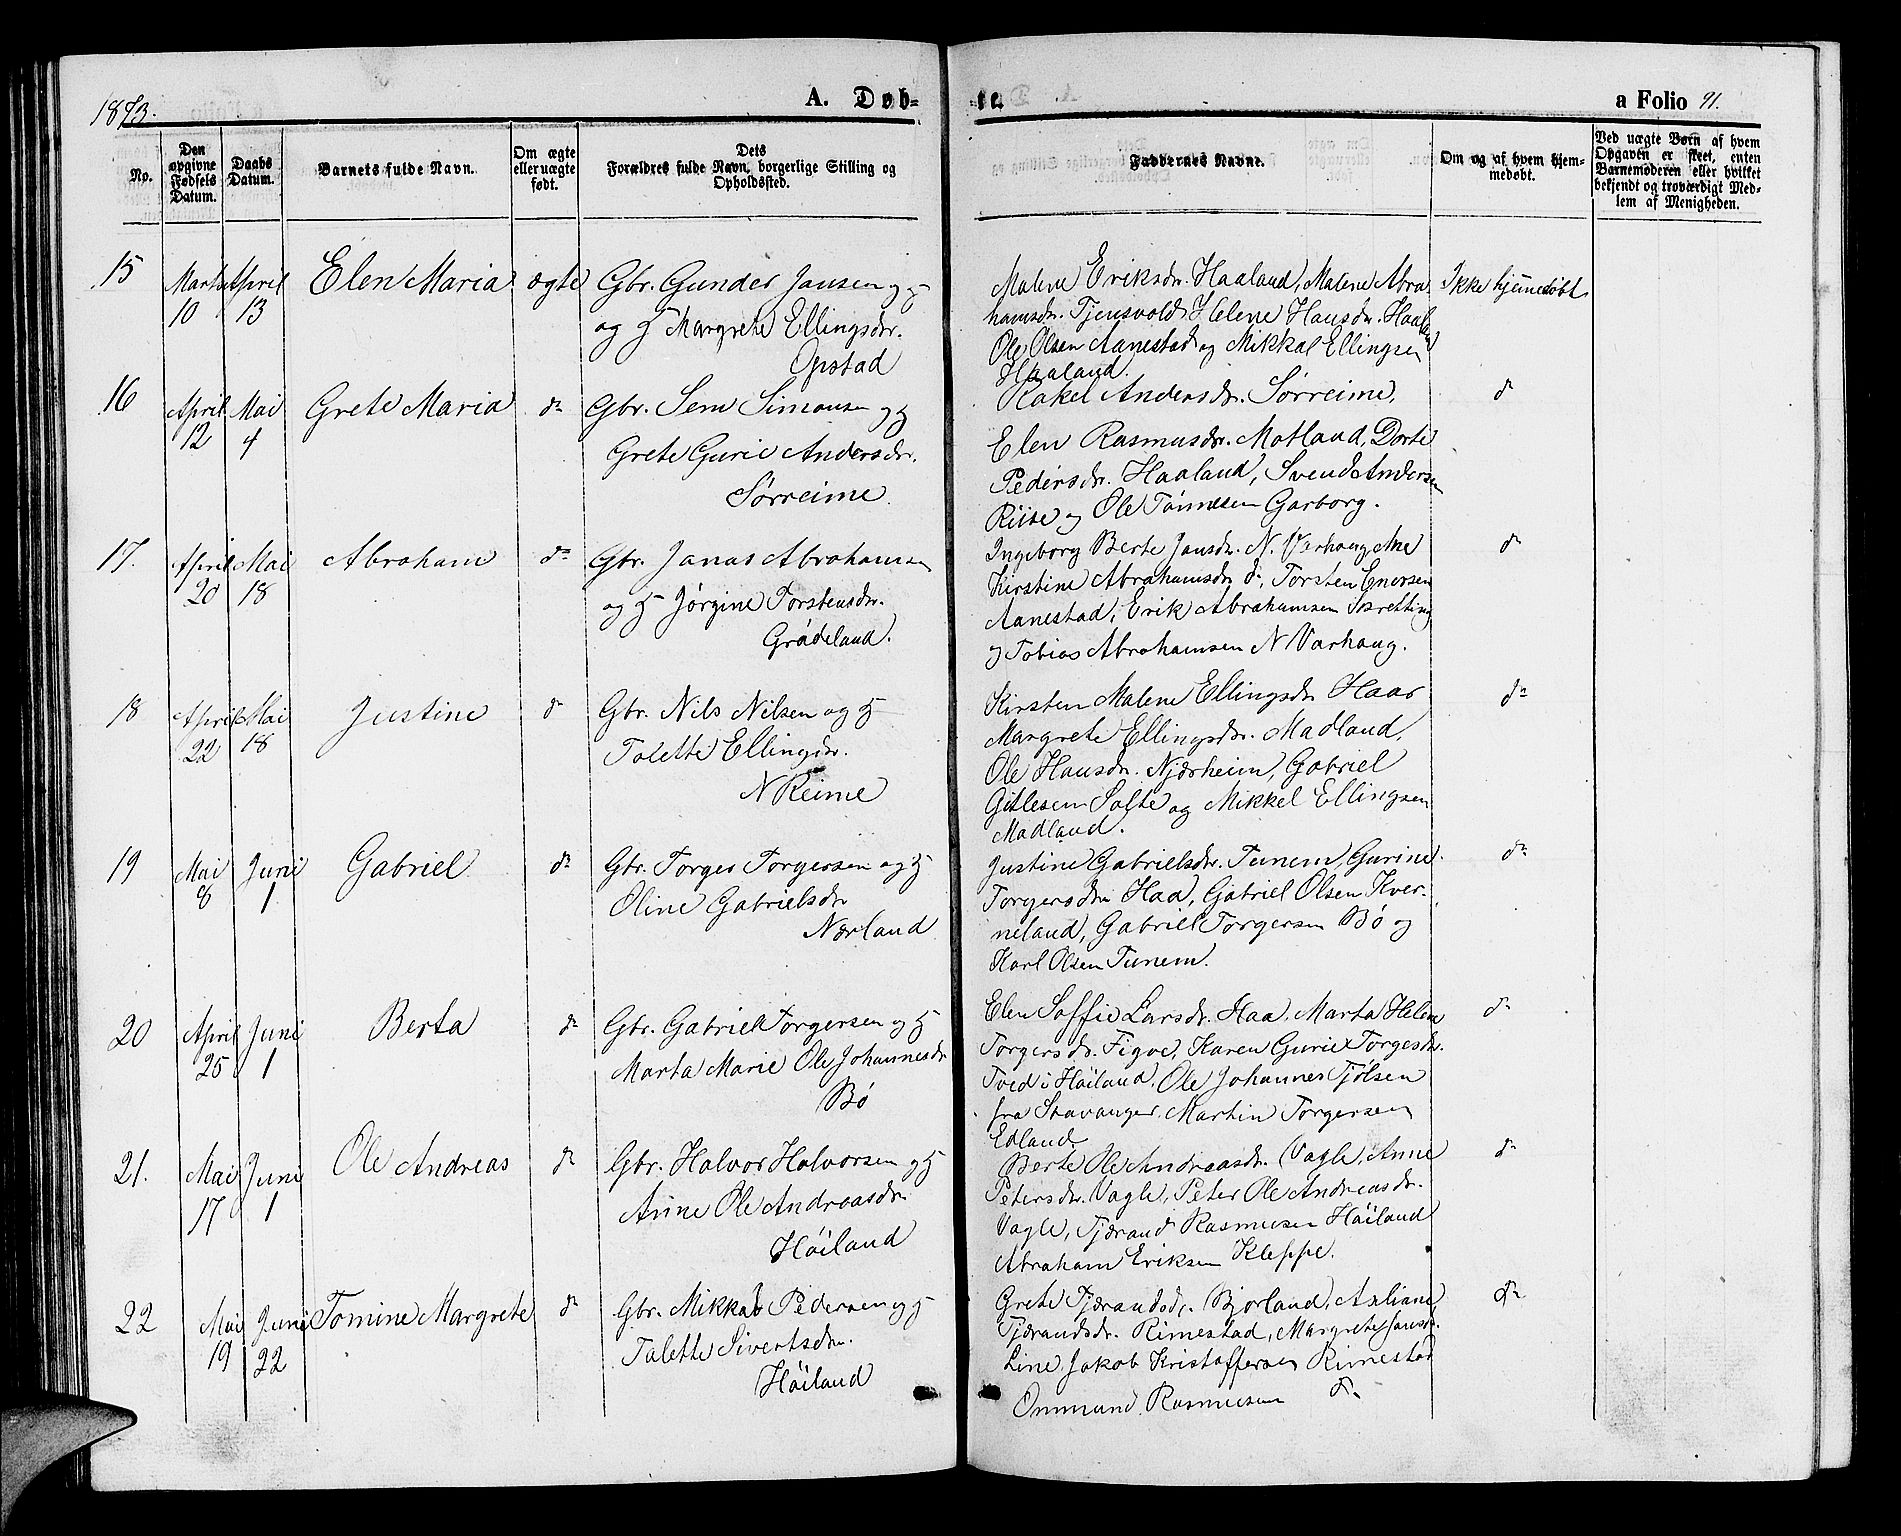 1873.
A. Døb-
te.
a Folio 91.
No.
Den opgivne Fødsels Datum.
Daabs Datum.
Barnets fulde Navn.
Om ægte eller uægte født.
Dets Forældres fulde Navn, borgerlige Stilling og Opholdssted.
Faddernes Navne.
Om og af hvem hjemmedøbt.
Ved uægte Børn af hvem Opgaven er skeet, enten Barnemoderen eller hvilket bekjendt og troværdigt Medlem af Menigheden.
15 Marts 10 April 13 Elen Maria ægte Gbr. Gunder Jansen og
og H Margrete Ellingsdr.
Opstad
Malene Eriksdr. Haaland, Malene Abra
hamsdr. Tjensvold, Helene Hansdr. Haaland
Ole Olsen Aanestad og Mikkal Ellingsen
Haaland.
Ikke hjemmedøbt
16 April 12 Mai 4 Grete Maria do Gbr. Sem Simonsen og H
Grete Gurie Andersdr.
Sørreime
Rakel Andersdr. Sørreime,
Elen Rasmusdr. Motland, Dorte
Pedersdr. Haaland, Svend Andersen
Riise og Ole Tønnesen Garborg.
do
17. April 20 Mai 18 Abraham do Gbr. Jonas Abrahamsen
og H Jørgine Torstensdr.
Grødeland.
Ingeborg Berte Jansdr. N. Varhaug, Ane
Kirstine Abrahamsdr do, Torsten Enersen
Aanestad, Erik Abrahamsen
og Tobias Abrahamsen N Varhaug.
do
18 April 22 Mai 18 Justine do Gbr. Nils Nilsen og H
Tolette Ellingsdr.
N Reime
Kirsten Malene Ellingsdr Haar
Margrete Ellingsdr. Madland,
Ole Hansdr. Njærheim, Gabriel
Gitlesen Salte og Mikkel Ellingsen
Madland.
do
19 Mai 8 Juni 1 Gabriel do Gbr. Torger Torgersen og H
Oline Gabrielsdr
Nærland
Justine Gabrielsdr. Tunem, Gurine
Torgersdr Haa, Gabriel Olsen Kver-
neland, Gabriel Torgersen Bø og
Karl Olsen Tunem.
do
20 April 25 Juni 1 Berta do Gbr. Gabriel Torgersen og H
Marta Marie Ole Johannesdr
Bø
Elen Soffie Larsdr. Haa, Marta Helene
Torgersdr. Figve, Karen Gurie Torgesdr.
Tved i Høiland, Ole Johannes Tjølsen
fra Stavanger. Martin Torgersen
Edland
do
21. Mai 17 Juni 1 Ole Andreas do Gbr. Halvor Halvorsen og H
Anne Ole Andreasdr
Høiland
Berte Ole Andreasdr. Vagle, Anne
Petersdr. Vagle, Peter Ole Andreasdr.
Vagle, Tjærand Rasmusen Høiland
Abraham Eriksen Kleppe.
do
22 Mai 19 Juni 22 Tomine Margrete do Gbr. Mikkal Pedersen og H
Talette Sivertsdr.
Høiland
Grete Tjærandsd. Bjorland, Axliane
Tjærandsdr. Rimestad, Margrete Jansdr.
Line, Jakob Kristoffersen Rimestad
Ommund Rasmusen do
do